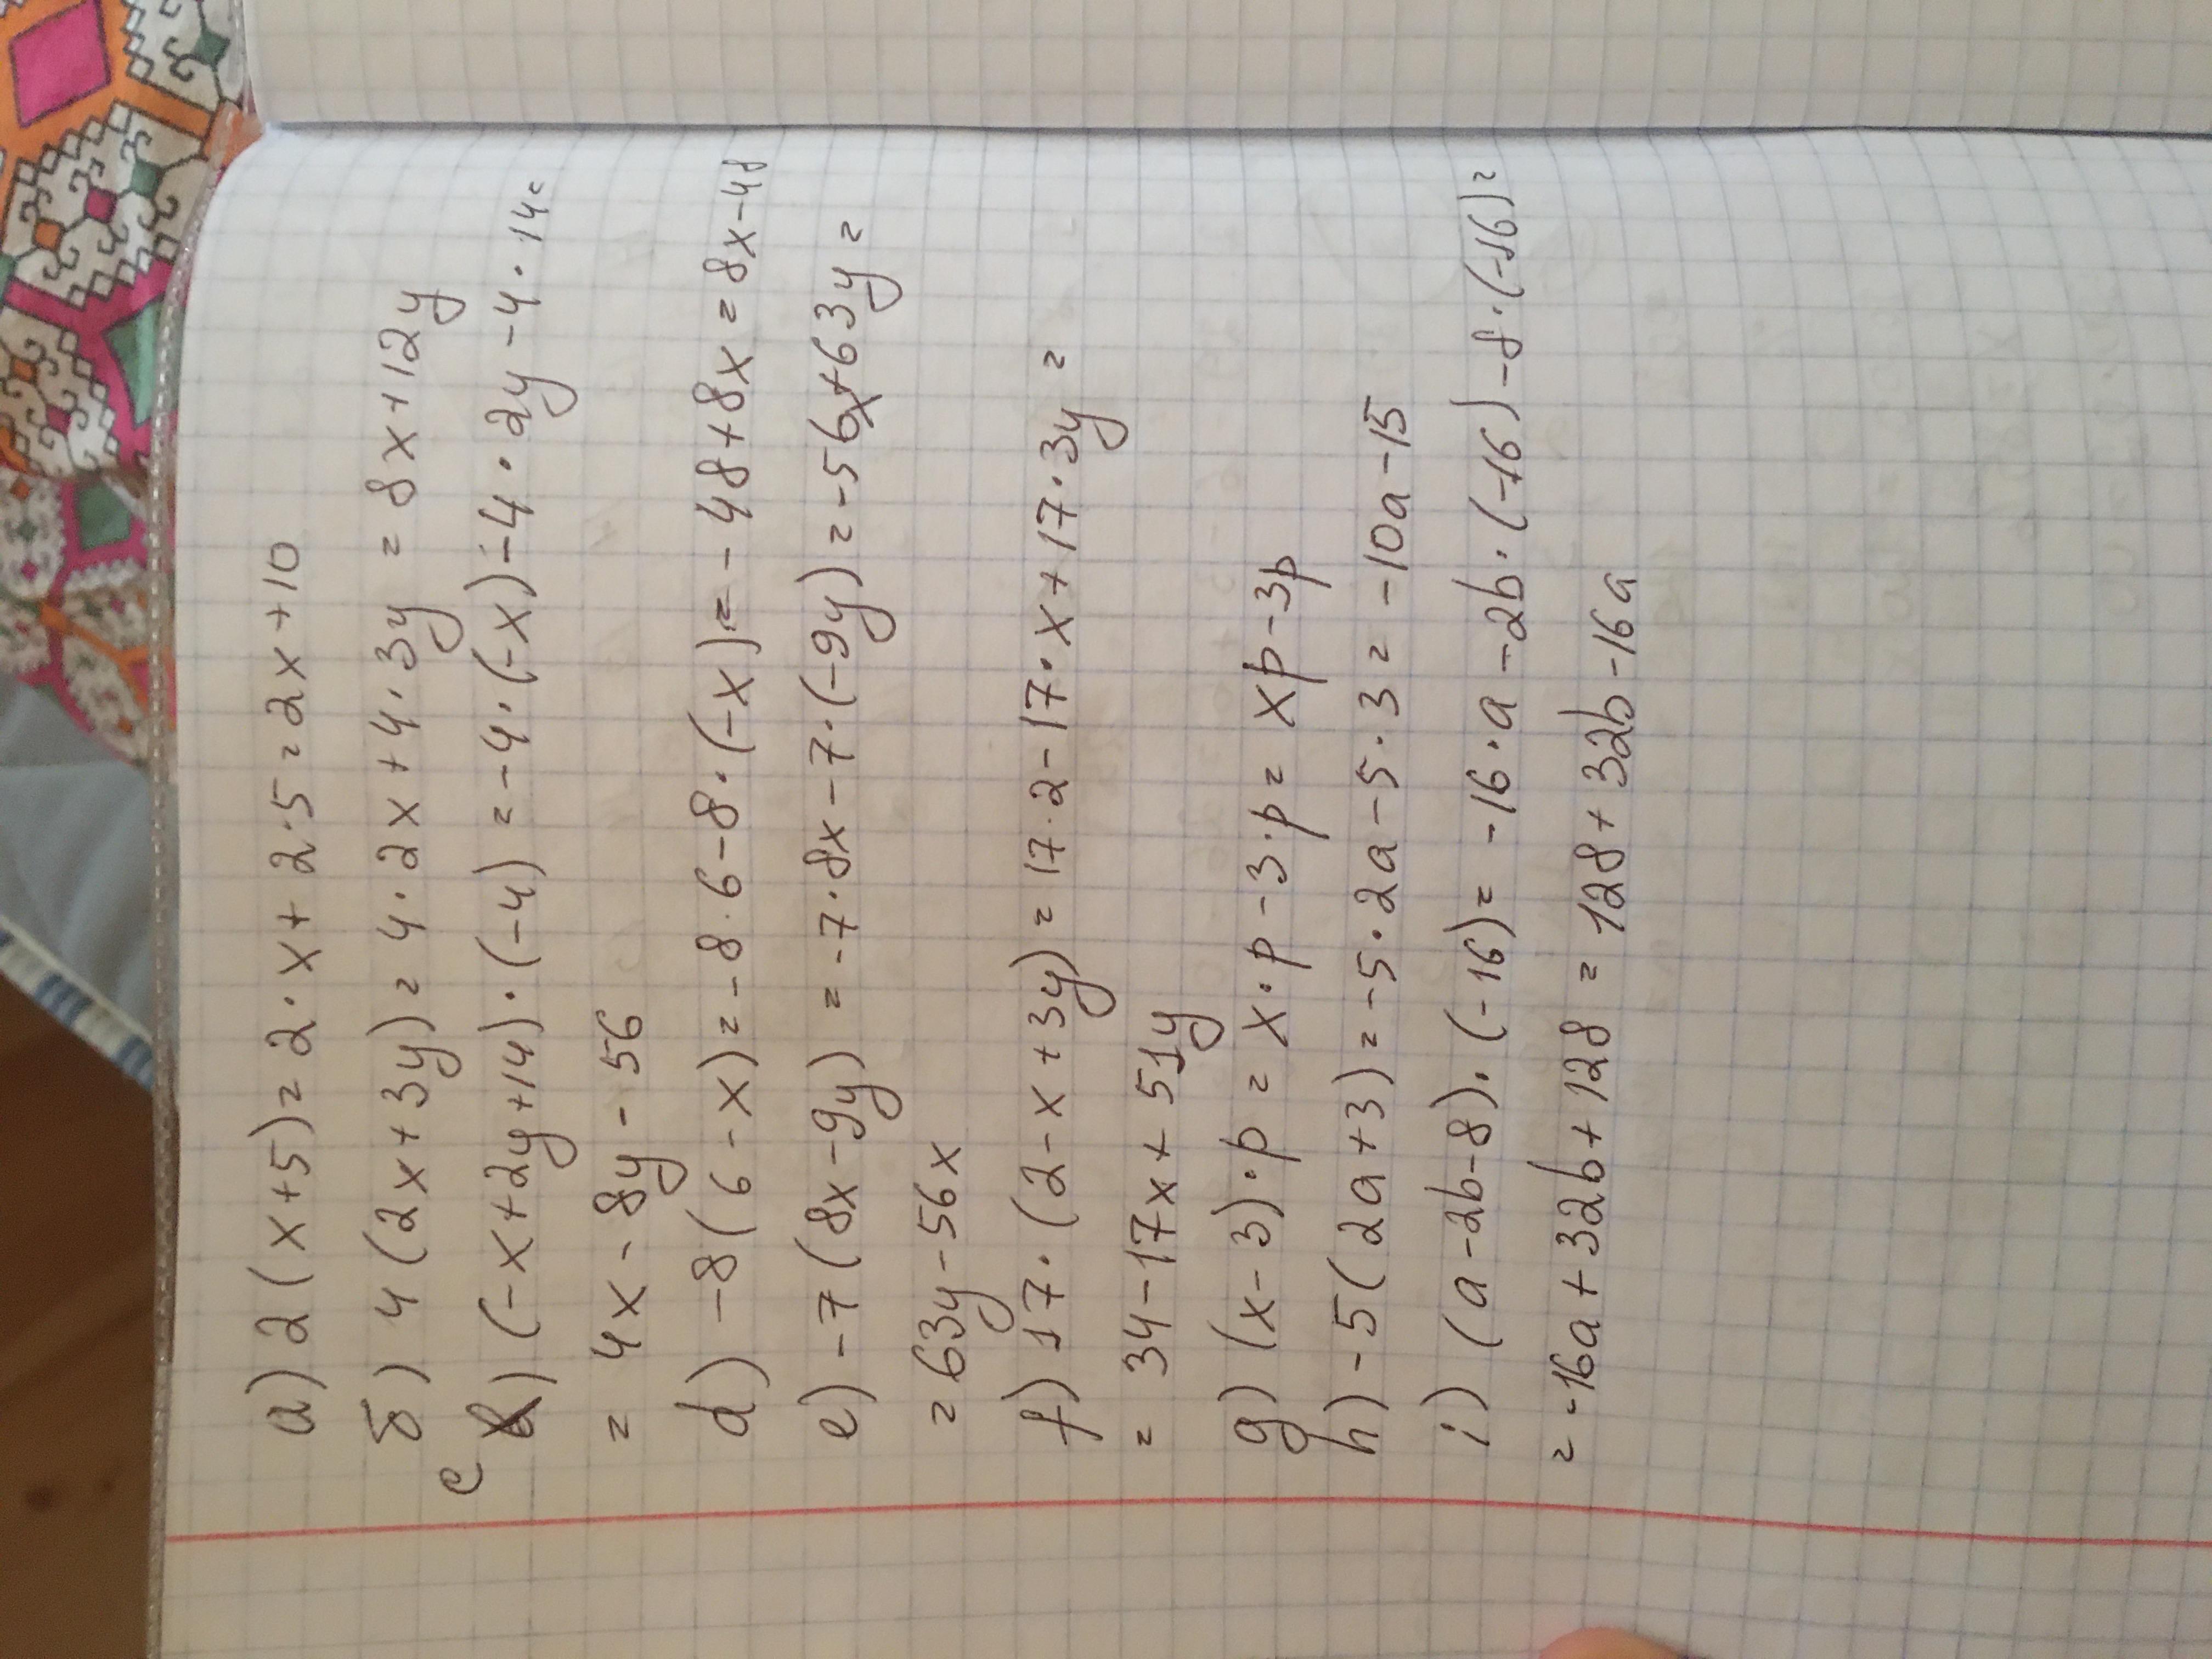 a) 2(x+5)=2·x+2·5=2x+10
б) 4(2x+3y)=4·2x+4·3y=8x+12y
c) (-x+2y+14)·(-4)=-4·(-x)-4·2y-4·14=
=4x-8y-56
d) -8(6-x)=-8·6-8·(-x)=-48+8x=8x-48
e) -7(8x-9y)=-7·8x-7·(-9y)=-56x+63y=
=63y-56x
f) 17·(2-x+3y)=17·2-17·x+17·3y=
=34-17x+51y
g) (x-3)·p=x·p-3·p=xp-3p
h) -5(2a+3)=-5·2a-5·3=-10a-15
i) (a-2b-8)·(-16)=-16·a-2b·(-16)-8·(-16)=
=-16a+32b+128=128+32b-16a